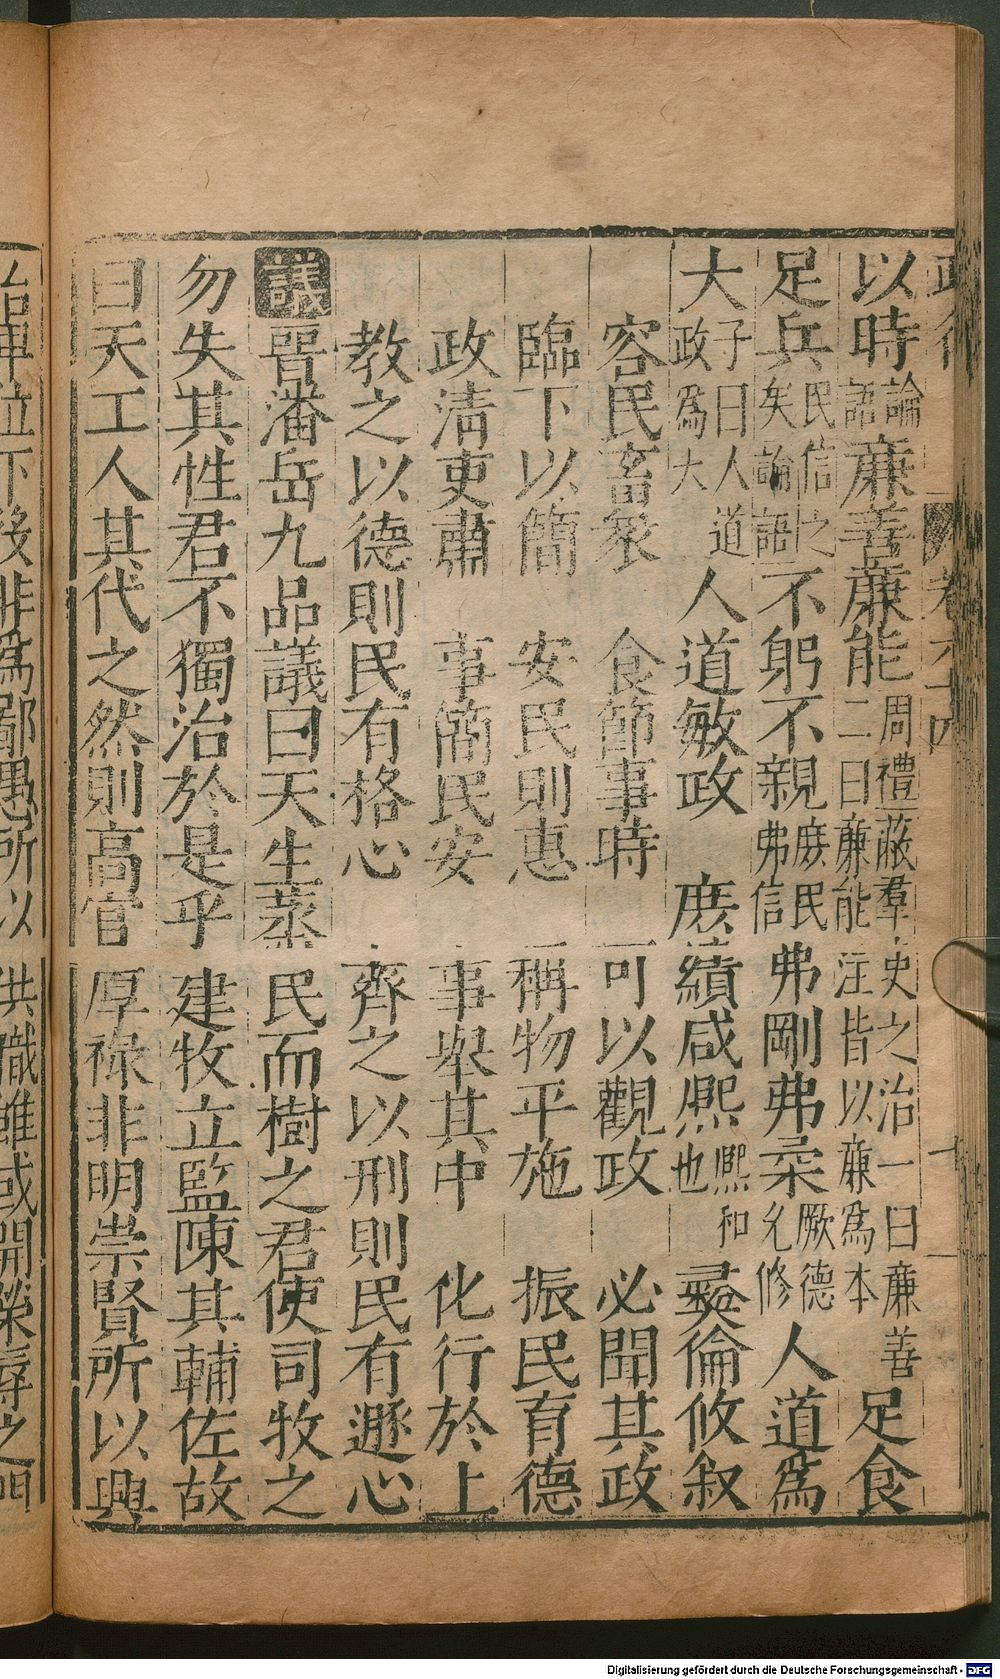 以時論語廉善廉能周禮蔽羣吏之治一曰廉善二曰廉能注皆以廉爲本足食
足兵民信之矣論語不躬不親庶民弗信弗剛弗柔厥德允修人道爲
大子曰人道政爲大人道敏政 庶績咸熈熈和也彛倫攸叙
容民畜衆 食節事時 可以觀政 必聞其政
臨下以簡 安民則惠 稱物平施 振民育德
政淸吏肅 事簡民安 事舉其中 化行於上
教之以德則民有格心 齊之以刑則民有遯心
議晉潘岳九品議曰天生蒸民而樹之君使司牧之
勿失其性君不獨治於是乎建牧立監陳其輔佐故
曰天工人其代之然則高官厚祿非明崇賢所以興
治單位下役非爲鄙愚所以供職雖或開榮辱之門
卷六十四
Digitalisierung gefördert durch die Deutsche Forschungsgemeinschaft - DFG